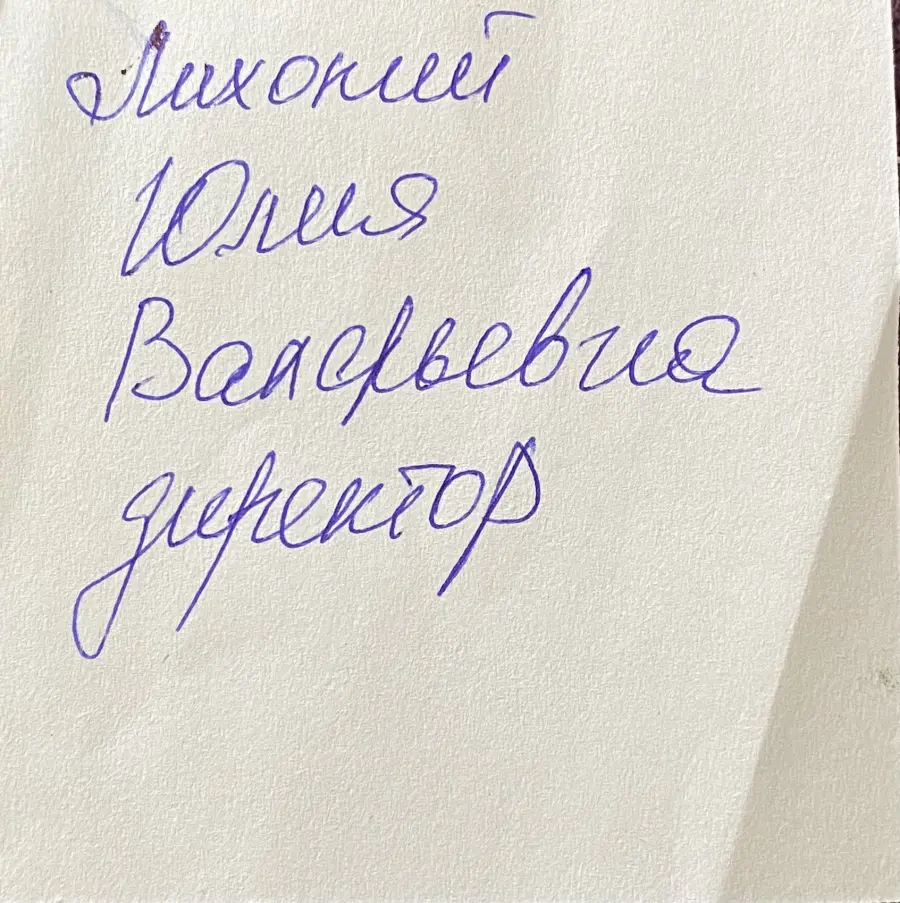 Лихоний
Юлия
Валерьевна
директор